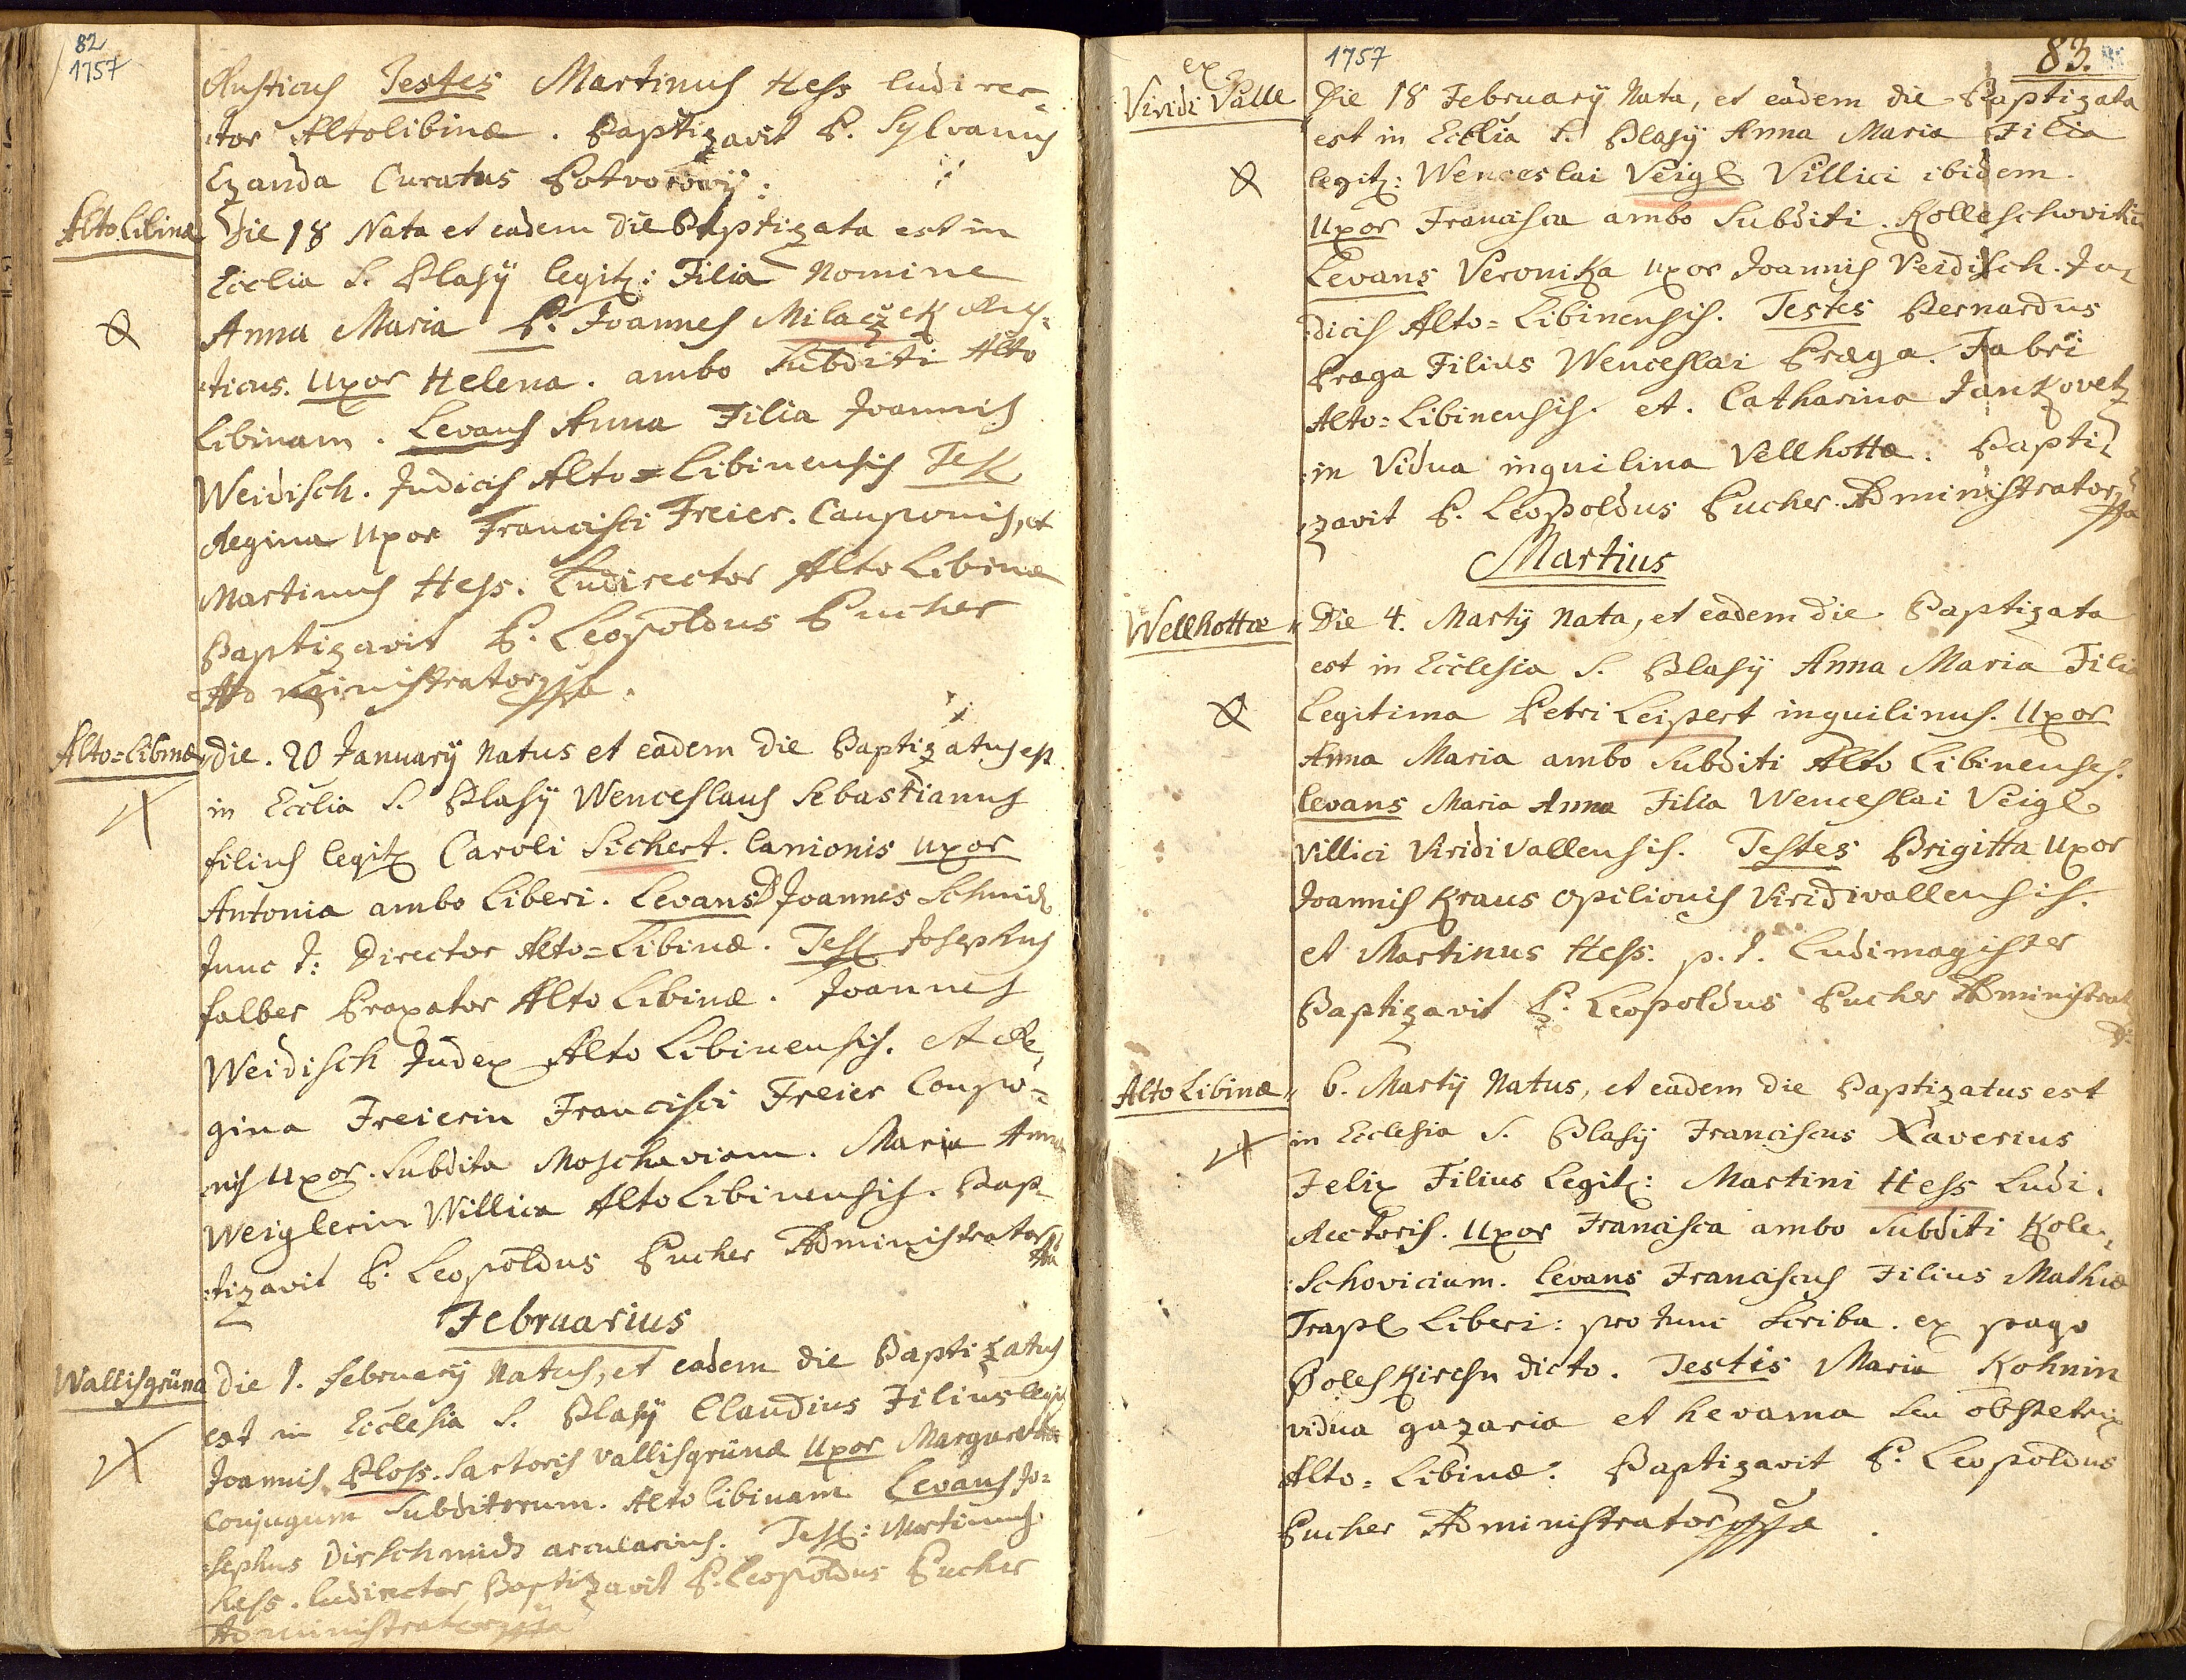 82
1757
Rusticus Testes Martinus Hess ludi rec-
tor Altolibinæ. Baptizavit P. Sylvanus
Czanda Curatus Potvorovij:
Alto Libinæ Die 18 Nata et eadem Die Baptizata est in
Ecclia S. Blasij legit: Filia Nomine
Anna Maria P. Joannes Milaczek Rus-
ticus. Uxor Helena. ambo Subditi Alto
Libinam. Levans Anna Filia Joannis
Weidisch. Judicis Alto=Libinensis Test
Regina Uxor Francisci Freier. Cauponis, et
Martinus Hess. Ludirector Alto Libinæ
Baptizavit P. Leopoldus Pucher
Administrator
Alto=Libinæ die. 20 Januarij Natus et eadem die Baptizatus est
in Ecclia S. Blasij Wenceslaus Sebastianus
filius legit Caroli Sichert. lanionis Uxor
Antonia ambo Liberi. Levans D Joannes Schmidt
tunc t: Director Alto=Libinæ. Test Josephus
falber Braxator Alto Libinæ. Joannes
Weidisch Judex Alto Libinensis. et Re,
gina Freierin Francisci Freier Caupo=
nis Uxor. Subdita Moschaviam. Maria Anna
Weiglerin Willica Alto Libinensis. Bap
tizavit P. Leopoldus Pucher Administrator
Februarius
Wallisgrüna Die 1. februarij Natus, et eadem die Baptizatus
est in Ecclesia S. Blasij Claudius Filius legit
Joannis Ploss. Sartoris Vallisgrünæ Uxor Margaretha
Conjugum Subditorum. Alto libinam Levans Jo=
sephus Dirschmidt arcularius. Test: Martinus
Hess. ludirector Baptizavit P. Leopoldus Pucher
Administrator
1757
83.
ex
Viridi Valle Die 18 Februarij Nata, et eadem die Baptizata
est in Ecclia S. Blasij Anna Maria Filia
legit: Wenceslai Veigl Villici ibidem.
Uxor Francisca ambo Subditi. Kolleschovitii
Levans Veronika uxor Joannis Veidisch. Ju-
dicis Alto=Libinensis. Testes Bernardus
Praga Filius Wenceslai Præga. Fabri
Alto=Libinensis. et. Catharina Jankovetz
in Vidua inquilina Vellhotta. Bapti-
zavit P. Leopoldus Pucher. Administrator
Martius
Wellhottæ Die 4. Martij Nata, et eadem die Baptizata
est in Ecclesia S. Blasij Anna Maria Filia
Legitima Petri Leipert inquilinus. Uxor
Anna Maria ambo Subditi Alto Libinenses.
levans Maria Anna Filia Wenceslai Veigl
Villici Viridivallensis. Testes Brigitta Uxor
Joannis Kraus opilionis Viridivallensis.
et Martinus Hess: p. t. Ludimagister
Baptizavit P. Leopoldus Pucher Administrat
Alto Libinæ 6. Martij Natus, et eadem die Baptizatus est
in Ecclesia S. Blasij Franciscus Xaverius
Felix Filius Legit: Martini Hess Ludi.
Rectoris. Uxor Francisca ambo Subditi Kole,
Schovicium. levans Franciscus Filius Mathiæ
Trapl Liberi: pro tunc Scriba. ex pago
Poleskirchn dicto. Testis Maria Kohnin
vidua gazaria et hevama seu obstetrix
Alto=Libinæ: Baptizavit P. Leopoldus
Pucher Administrator